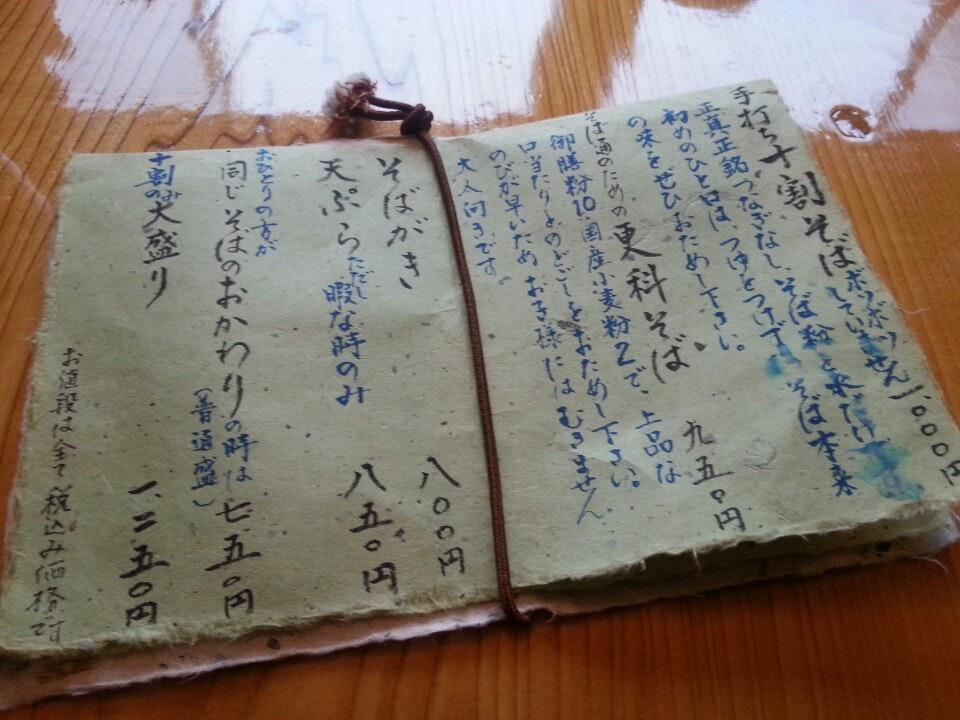 手打ち十割そば 一、000円
ボソボソしていません
正真正銘つなぎなし、そば粉と水だけです
初めのひと口は、つゆをつけず、そば本来
の味をぜひおためし下さい。
そば通のための更科そば 九五0円
御膳粉10国産小麦粉2で、上品な
口当たりとのどごしをおためし下さい。
のびが早いため お子様にはむきません
大人向きです。
そばがき 八00円
天ぷら ただし暇な時のみ 八五0円
おひとりの方が
同じそばのおかわりの時は 七五0円
(普通盛)
十割のみ大盛り 一、二五0円
お値段は全て税込み価格です